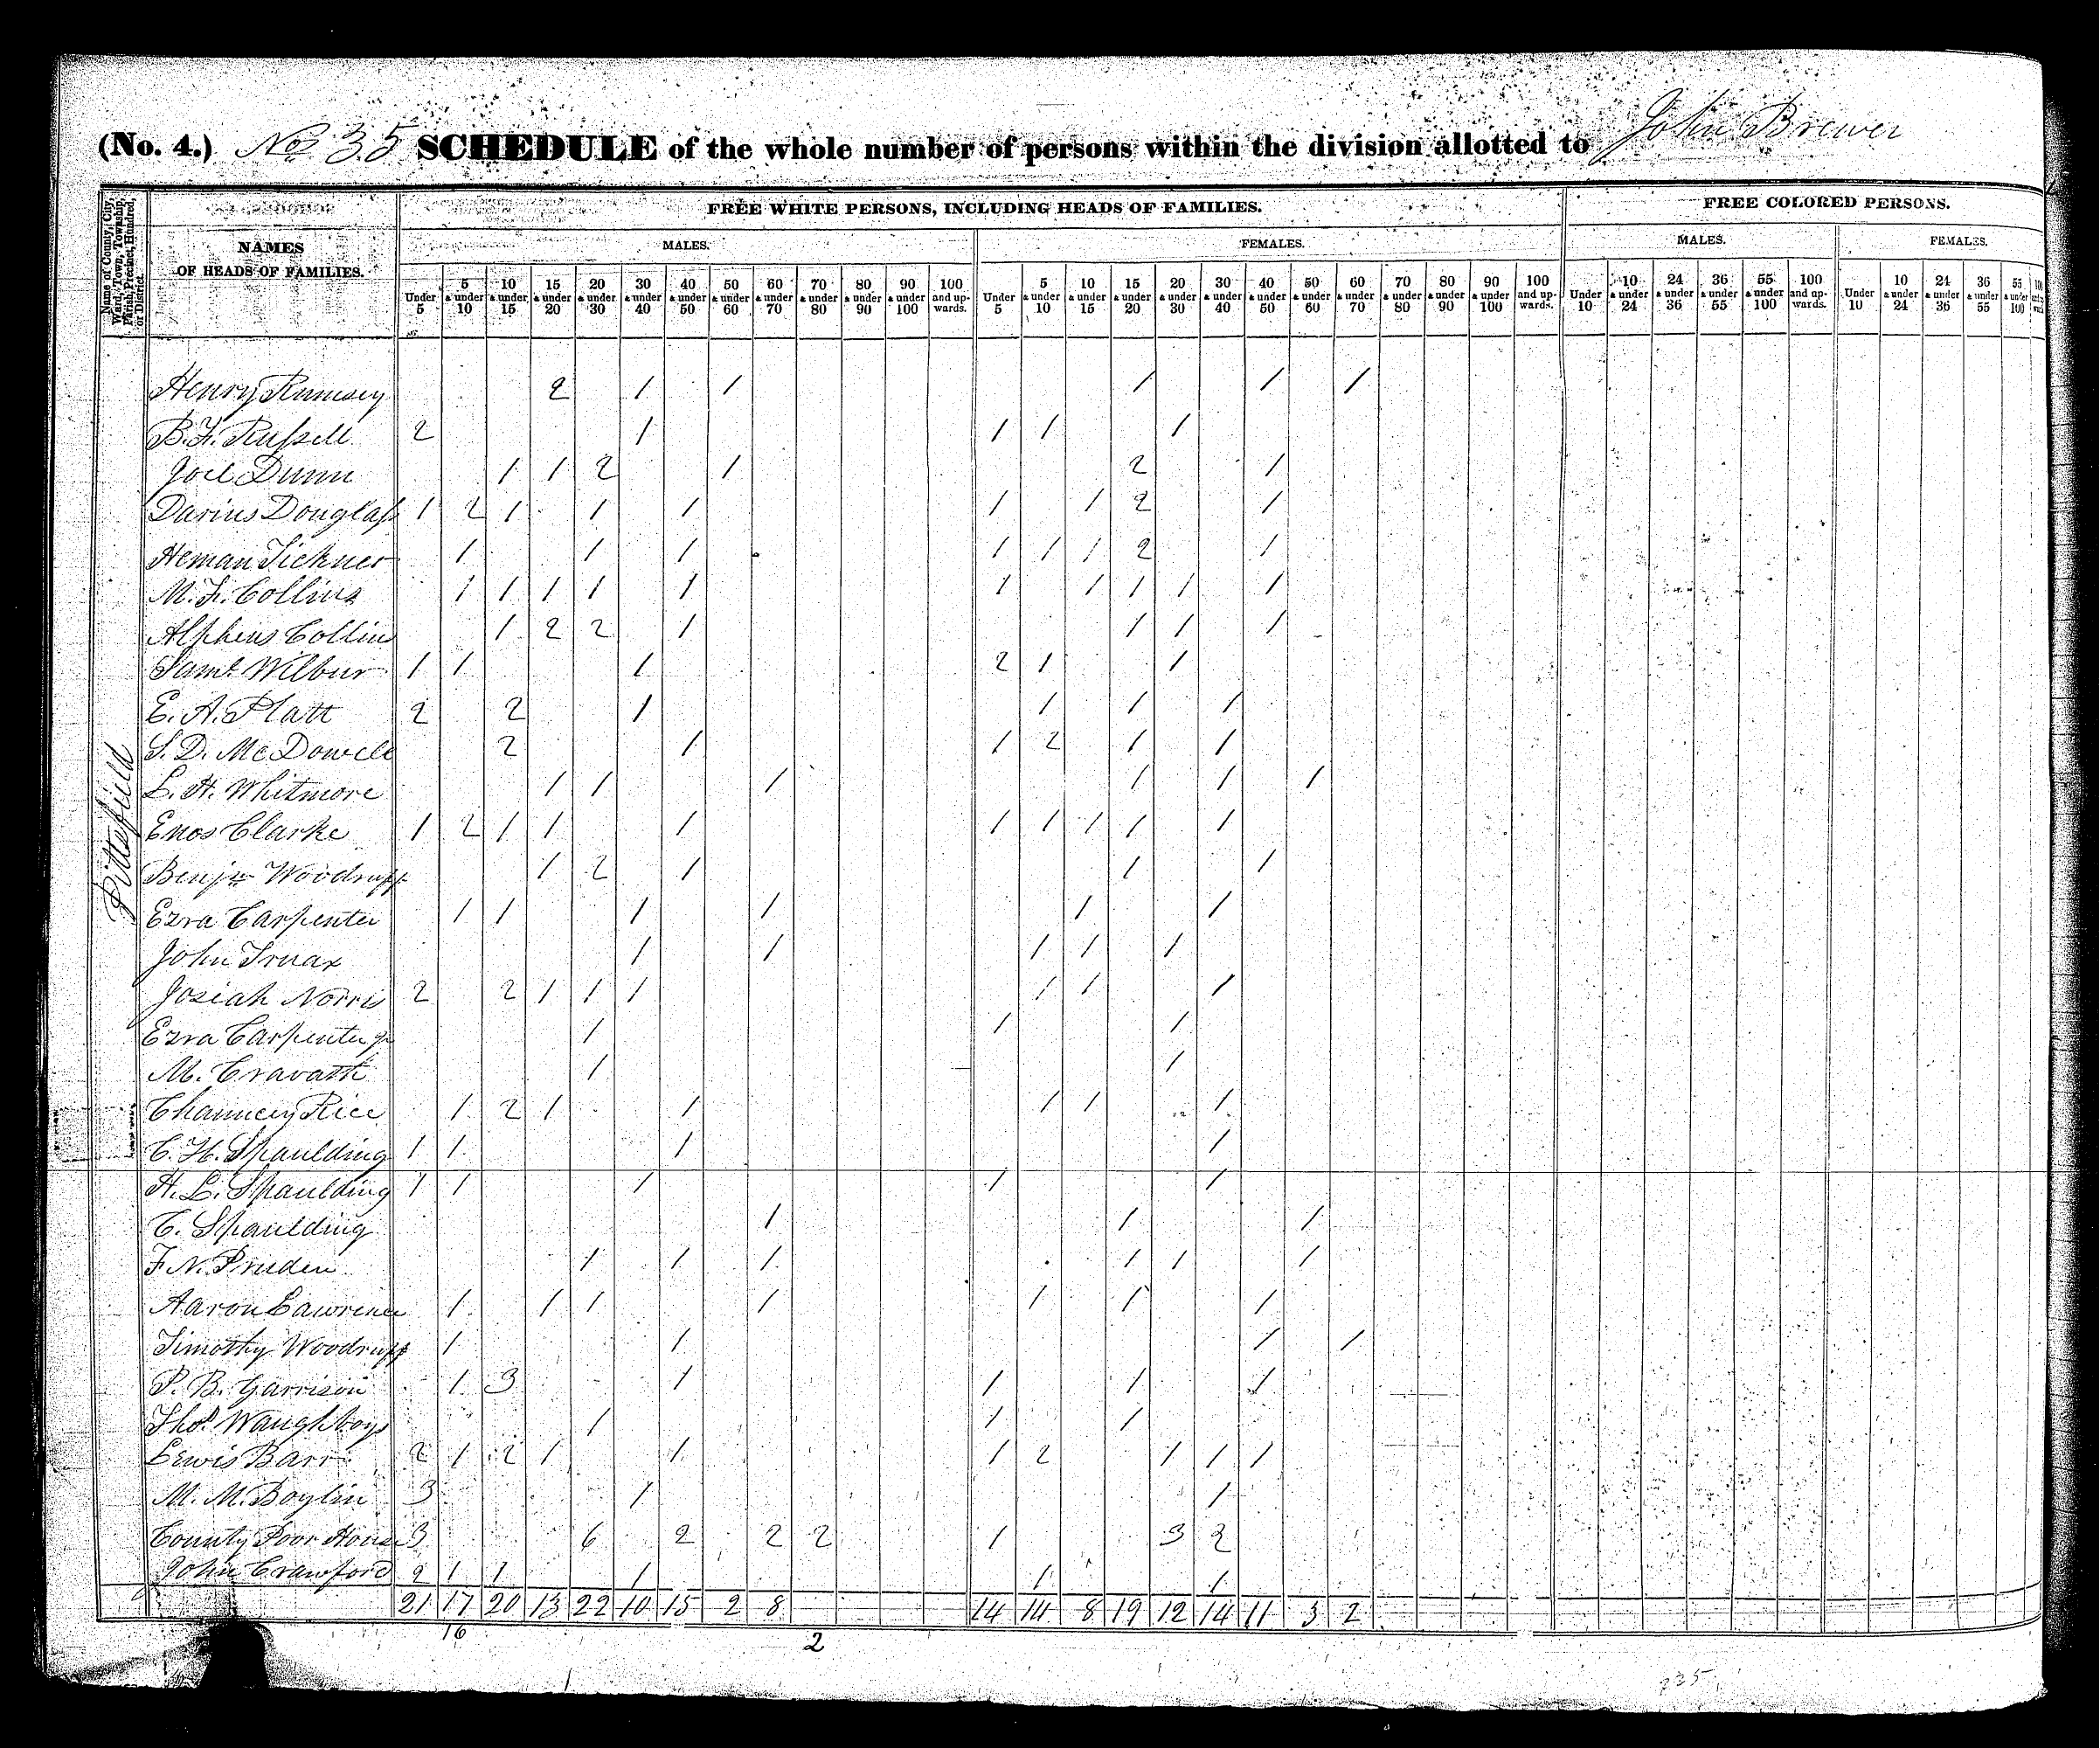 (No. 4.) No. 35 SCHEDULE of the whole number of persons within the division allotted to John Brewer
Name of County, City, Ward, Town, Township, Parish, Precinct, Hundred, or District.
NAMES OF HEADS OF FAMILIES.
FREE WHITE PERSONS, INCLUDING HEADS OF FAMILIES.
FREE COLORED PERSONS.
MALES. FEMALES. MALES. FEMALES.
Under 5 5 & under 10 10 & under 15 15 & under 20 20 & under 30 30 & under 40 40 & under 50 50 & under 60 60 & under 70 70 & under 80 80 & under 90 90 & under 100 100 and upwards. Under 5 5 & under 10 10 & under 15 15 & under 20 20 & under 30 30 & under 40 40 & under 50 50 & under 60 60 & under 70 70 & under 80 80 & under 90 90 & under 100 100 and upwards. Under 10 10 & under 24 24 & under 36 36 & under 55 55 & under 100 100 and upwards. Under 10 10 & under 24 24 & under 36 36 & under 55 55 & under 100
Pittsfield
Henry Ramsey 2 1 1 1 1 1
B. F. Russell 2 1 1 1 1
Joel Dunn 1 1 2 1 2 1
Darius Douglass 1 2 1 1 1 1 1 2 1
Heman Tickner 1 1 1 1 1 1 2 1
M. F. Collins 1 1 1 1 1 1 1 1 1 1
Alpheus Collins 1 2 2 1 1 1 1
Saml. Wilbur 1 1 1 2 1 1
E. A. Platt 2 2 1 1 1 1
S. D. McDowell 2 1 1 2 1 1
L. H. Whitmore 1 1 1 1 1 1
Enos Clarke 1 2 1 1 1 1 1 1 1 1
Benjn. Woodruff 1 2 1 1 1
Ezra Carpenter 1 1 1 1 1 1
John Truax 1 1 1 1 1
Josiah Norris 2 2 1 1 1 1 1 1
Ezra Carpenter jr 1 1 1
M. Cravath 1 1
Chauncey Rice 1 2 1 1 1 1 1
C. H. Spaulding 1 1 1 1
H. L. Spaulding 1 1 1 1 1
C. Spaulding 1 1 1
F. N. Pruden 1 1 1 1 1 1
Aaron Lawrence 1 1 1 1 1 1 1
Timothy Woodruff 1 1 1 1
P. B. Garrison 1 3 1 1 1 1
Thos. Waughboys 1 1 1
Lewis Barr 2 1 2 1 1 1 2 1 1 1
M. M. Boylin 3 1 1
County Poor House 3 6 2 2 2 1 3 2
John Crawford 2 1 1 1 1 1
21 17 20 13 22 10 15 2 8 14 14 8 19 12 14 11 3 2
16 2
235